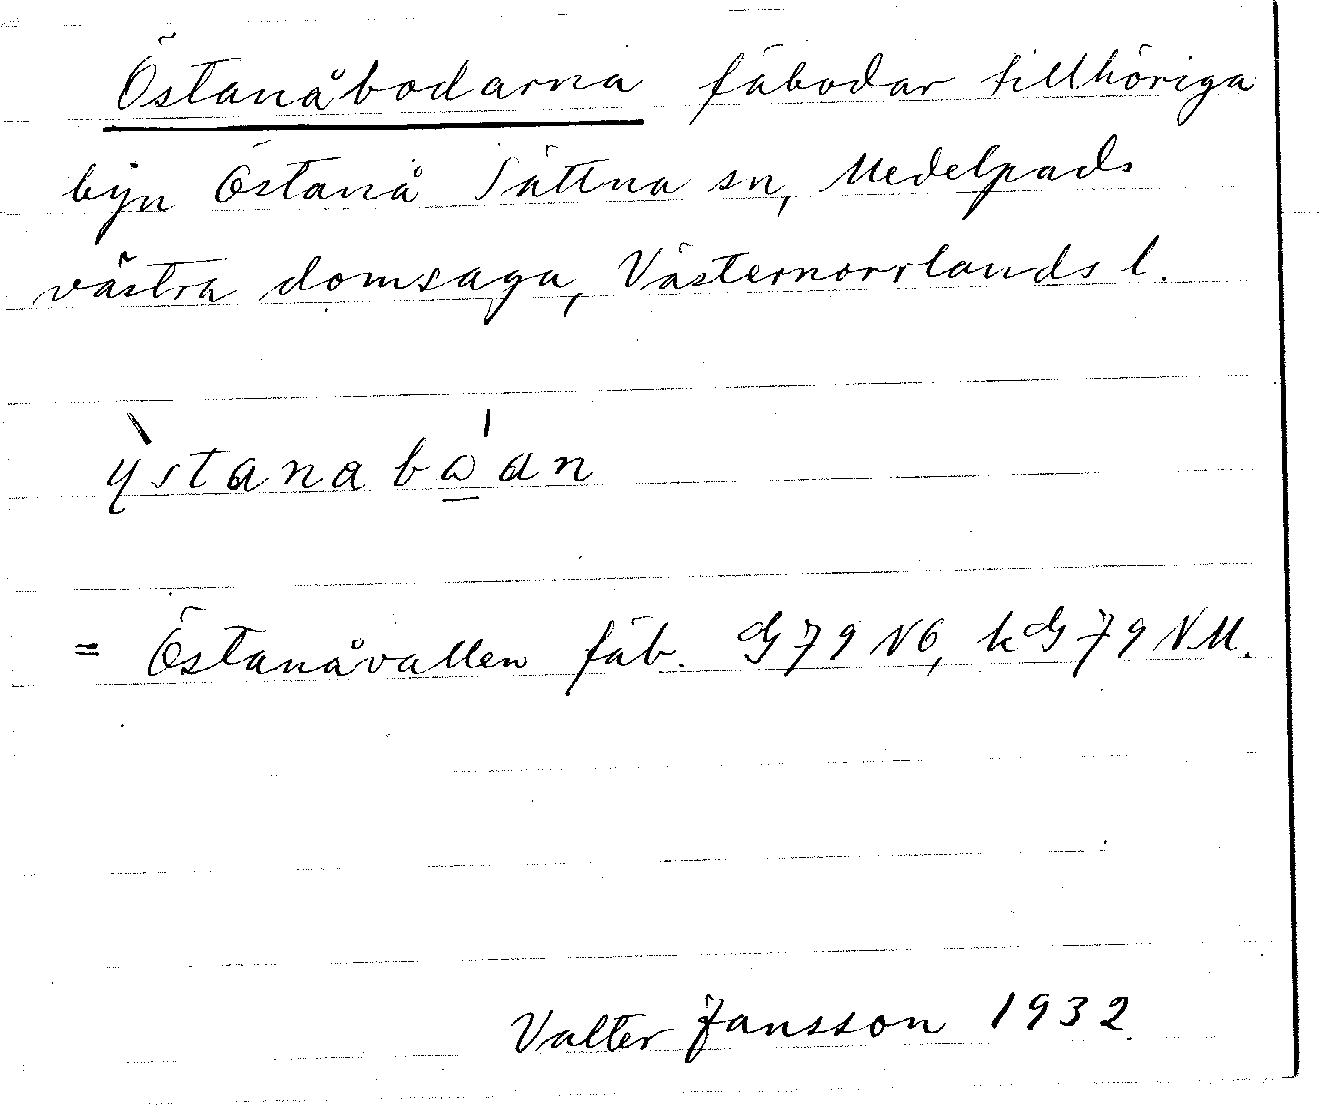 Östanåbodarna fäbodar tillhöriga
byn Östanå Sättna sn, Medelpads
västra domsaga, Västernorrlands l.
= Östanåvallen fäb. G79 NO, kG79 NM.
Valter Jansson 1932